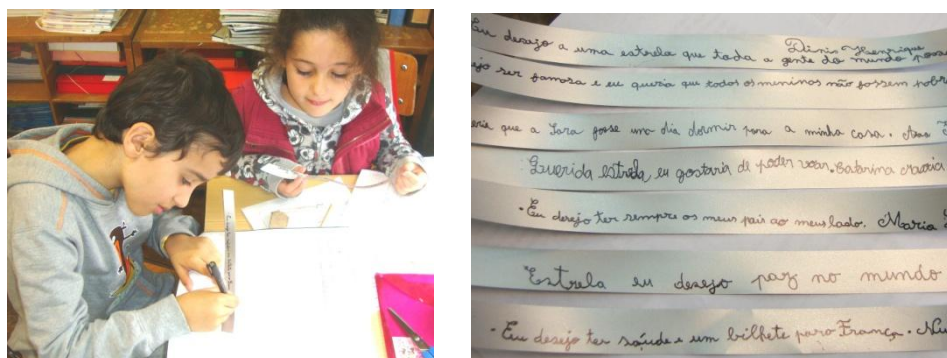 Eu desejo a uma estrela que toda a gente do mundo poss
Dinis Henrique
ejo ser famosa e eu queria que todos os meninos não fossem pobr
eria que a Sara fosse um dia dormir para a minha casa. Ana
Querida estrela eu gostaria de poder voar. Catarina Maria
• Eu desejo ter sempre os meus pais ao meu lado. Maria
Estrela eu desejo paz no mundo
• Eu desejo ter saúde e um bilhete para França.